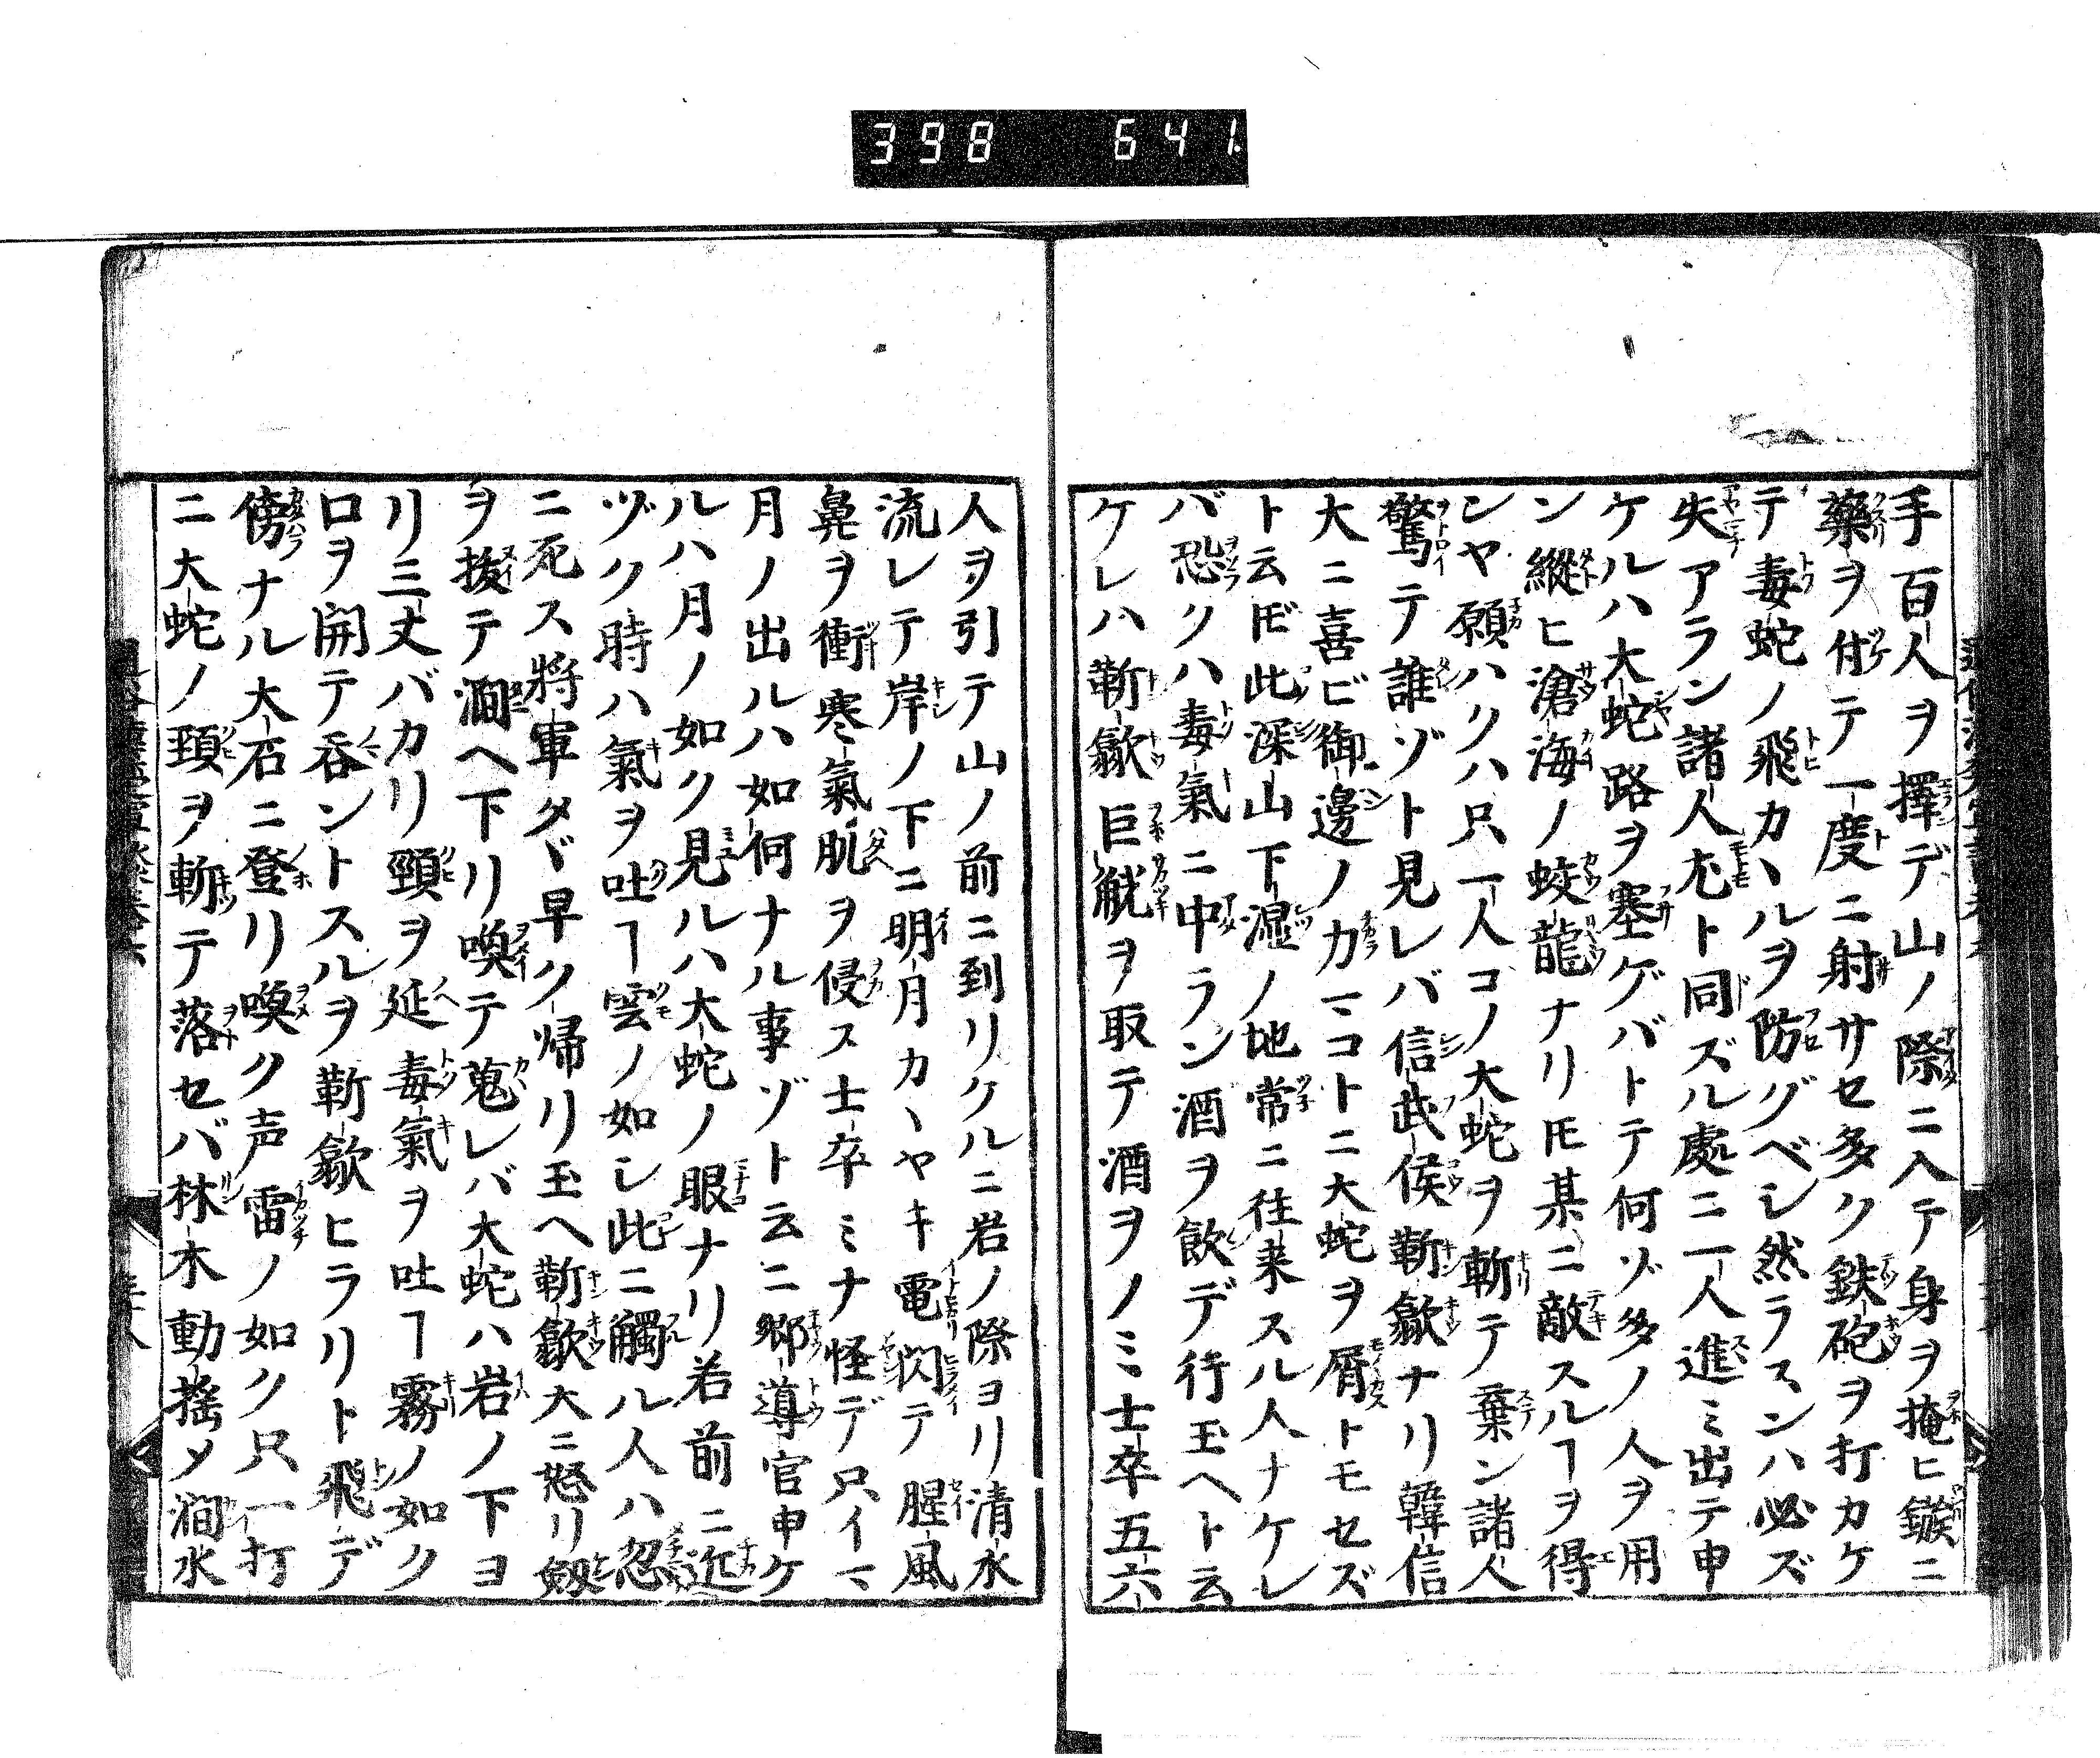 398 641.
手百人ヲ擇デ山ノ際ニ入テ身ヲ掩ヒ鏃ニ
藥ヲ付テ一度ニ射サセ多ク鉄砲ヲ打カケ
テ毒蛇ノ飛カヽルヲ防グベシ然ラスンハ必ズ
失アラン諸人尤ト同ズル處ニ一人進ミ出テ申
ケルハ大蛇路ヲ塞ゲバトテ何ゾ多ノ人ヲ用
ン縱ヒ滄海ノ蛟龍ナリ𪜈某ニ敵スルヿヲ得
ンヤ願ハクハ只一人コノ大蛇ヲ斬テ棄ン諸人
驚テ誰ゾト見レバ信武侯靳歙ナリ韓信
大ニ喜ビ御邊ノ力マコトニ大蛇ヲ屑トモセズ
ト云𪜈此深山下濕ノ地常ニ往来スル人ナケレ
バ恐クハ毒氣ニ中ラン酒ヲ飲デ行玉ヘト云
ケレハ靳歙巨觥ヲ取テ酒ヲノミ士卒五六
人ヲ引テ山ノ前ニ到リケルニ岩ノ際ヨリ清水
流レテ岸ノ下ニ明月カヽヤキ電閃テ腥風
鼻ヲ衝寒氣肌ヲ侵ス士卒ミナ怪デ只イマ
月ノ出ルハ如何ナル事ゾト云ニ郷導官申ケ
ルハ月ノ如ク見ルハ大蛇ノ眼ナリ若前ニ近
ヅク時ハ氣ヲ吐ヿ雲ノ如シ此ニ觸ル人ハ忽
ニ死ス將軍タヾ早ク帰リ玉ヘ靳歙大ニ怒リ劔
ヲ拔テ澗ヘ下リ喚テ蒐レバ大蛇ハ岩ノ下ヨ
リ三丈バカリ頸ヲ延毒氣ヲ吐ヿ霧ノ如ク
口ヲ開テ呑ントスルヲ靳歙ヒラリト飛デ
傍ナル大石ニ登リ喚ク声雷ノ如ク只一打
ニ大蛇ノ頚ヲ斬テ落セバ林木動揺メ澗水